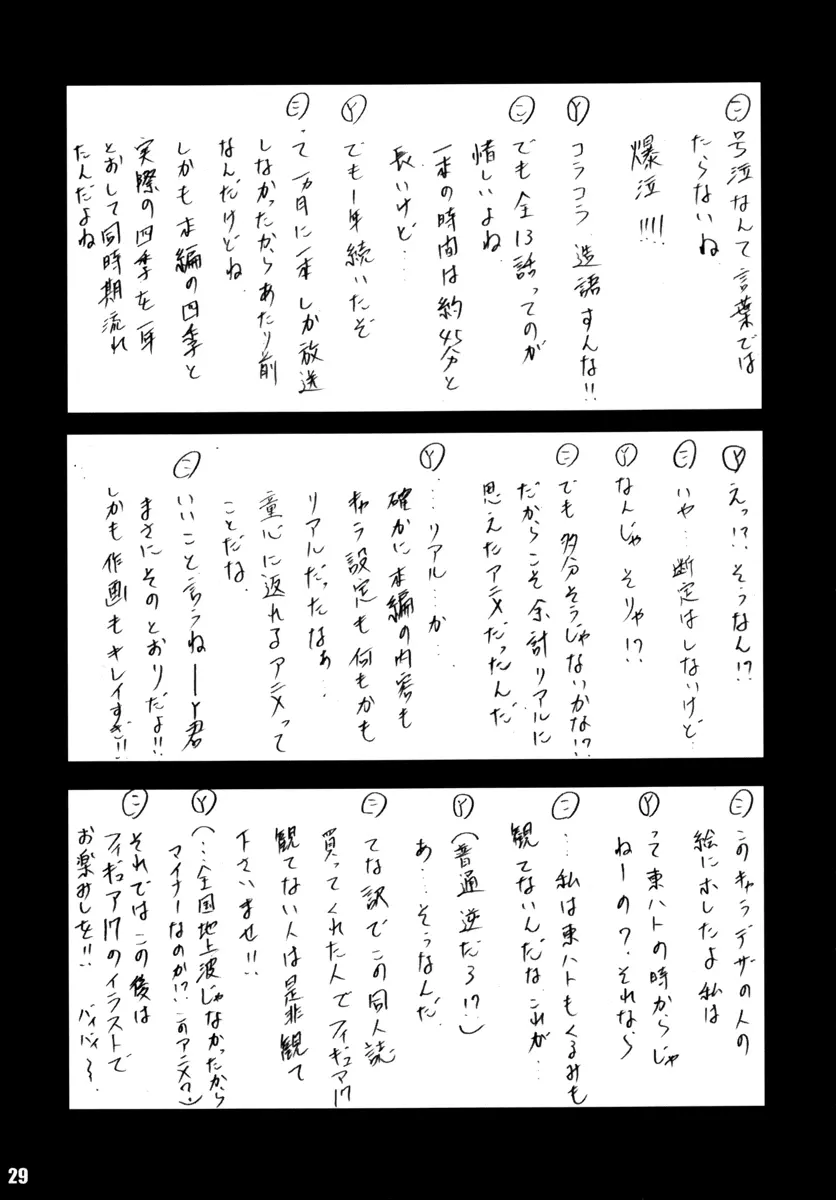 ㊁ 号泣なんて言葉では
たらないね
爆泣!!!!
Ⓨ コラコラ 造語すんな!!
㊁ でも全13話ってのが
惜しいよね
一本の時間は約45分と
長いけど…
Ⓨ でも1年続いたぞ
㊁ って一ヵ月に一本しか放送
しなかったからあたり前
なんだけどね
しかも本編の四季と
実際の四季を一年
とおして同時期流れ
たんだよね
Ⓨ えっ!? そうなん!?
㊁ いや…断定はしないけど…
Ⓨ なんじゃそりゃ!?
㊁ でも多分そうじゃないかな!?
だからこそ余計リアルに
思えたアニメだったんだ
Ⓨ …リアル…か
確かに本編の内容も
キャラ設定も何もかも
リアルだったなぁ…
童心に返れるアニメって
ことだな
㊁ いいこと言うねーY君
まさにそのとおりだよ!!
しかも作画もキレイすぎ!!
㊁ このキャラデザの人の
絵にホレたよ私は
Ⓨ って東ハトの時からじゃ
ねーの?それなら
㊁ …私は東ハトもくるみも
観てないんだな これが…
Ⓨ (普通逆だろ!?)
あ…そうなんだ
㊁ てな訳でこの同人誌
買ってくれた人でフィギュア17
観てない人は是非観て
下さいませ!!
Ⓨ (…全国地上波じゃなかったから
マイナーなのか!?このアニメ?)
㊁ それではこの後は
フィギュア17のイラストで
お楽しみを!! バイバイ〜
29